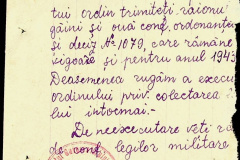 tui ordin trimiteți raionu
găini și ouă conf. ordonanței
și deciz. No 1079, care rămâne
vigoare și pentru anul 1943
Deasemenea rugăm a execu
ordinului priv. colectarea
lui întocmai.-
De neexecutare veți ră
de conf. legilor militare